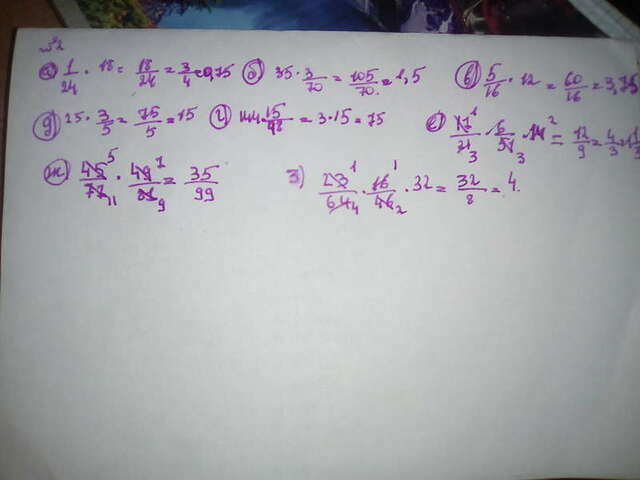 №2
а) 1/24 · 18 = 18/24 = 3/4 = 0,75 б) 35 · 3/70 = 105/70 = 1,5 в) 5/16 · 12 = 60/16 = 3,75
д) 25 · 3/5 = 75/5 = 15 = 3 · 15 = 75 е) · 14 = 12/9 = 4/3
ж) 45/77 · 49/81 = 35/99 з) 23/64 · 16/46 · 32 = 32/8 = 4.